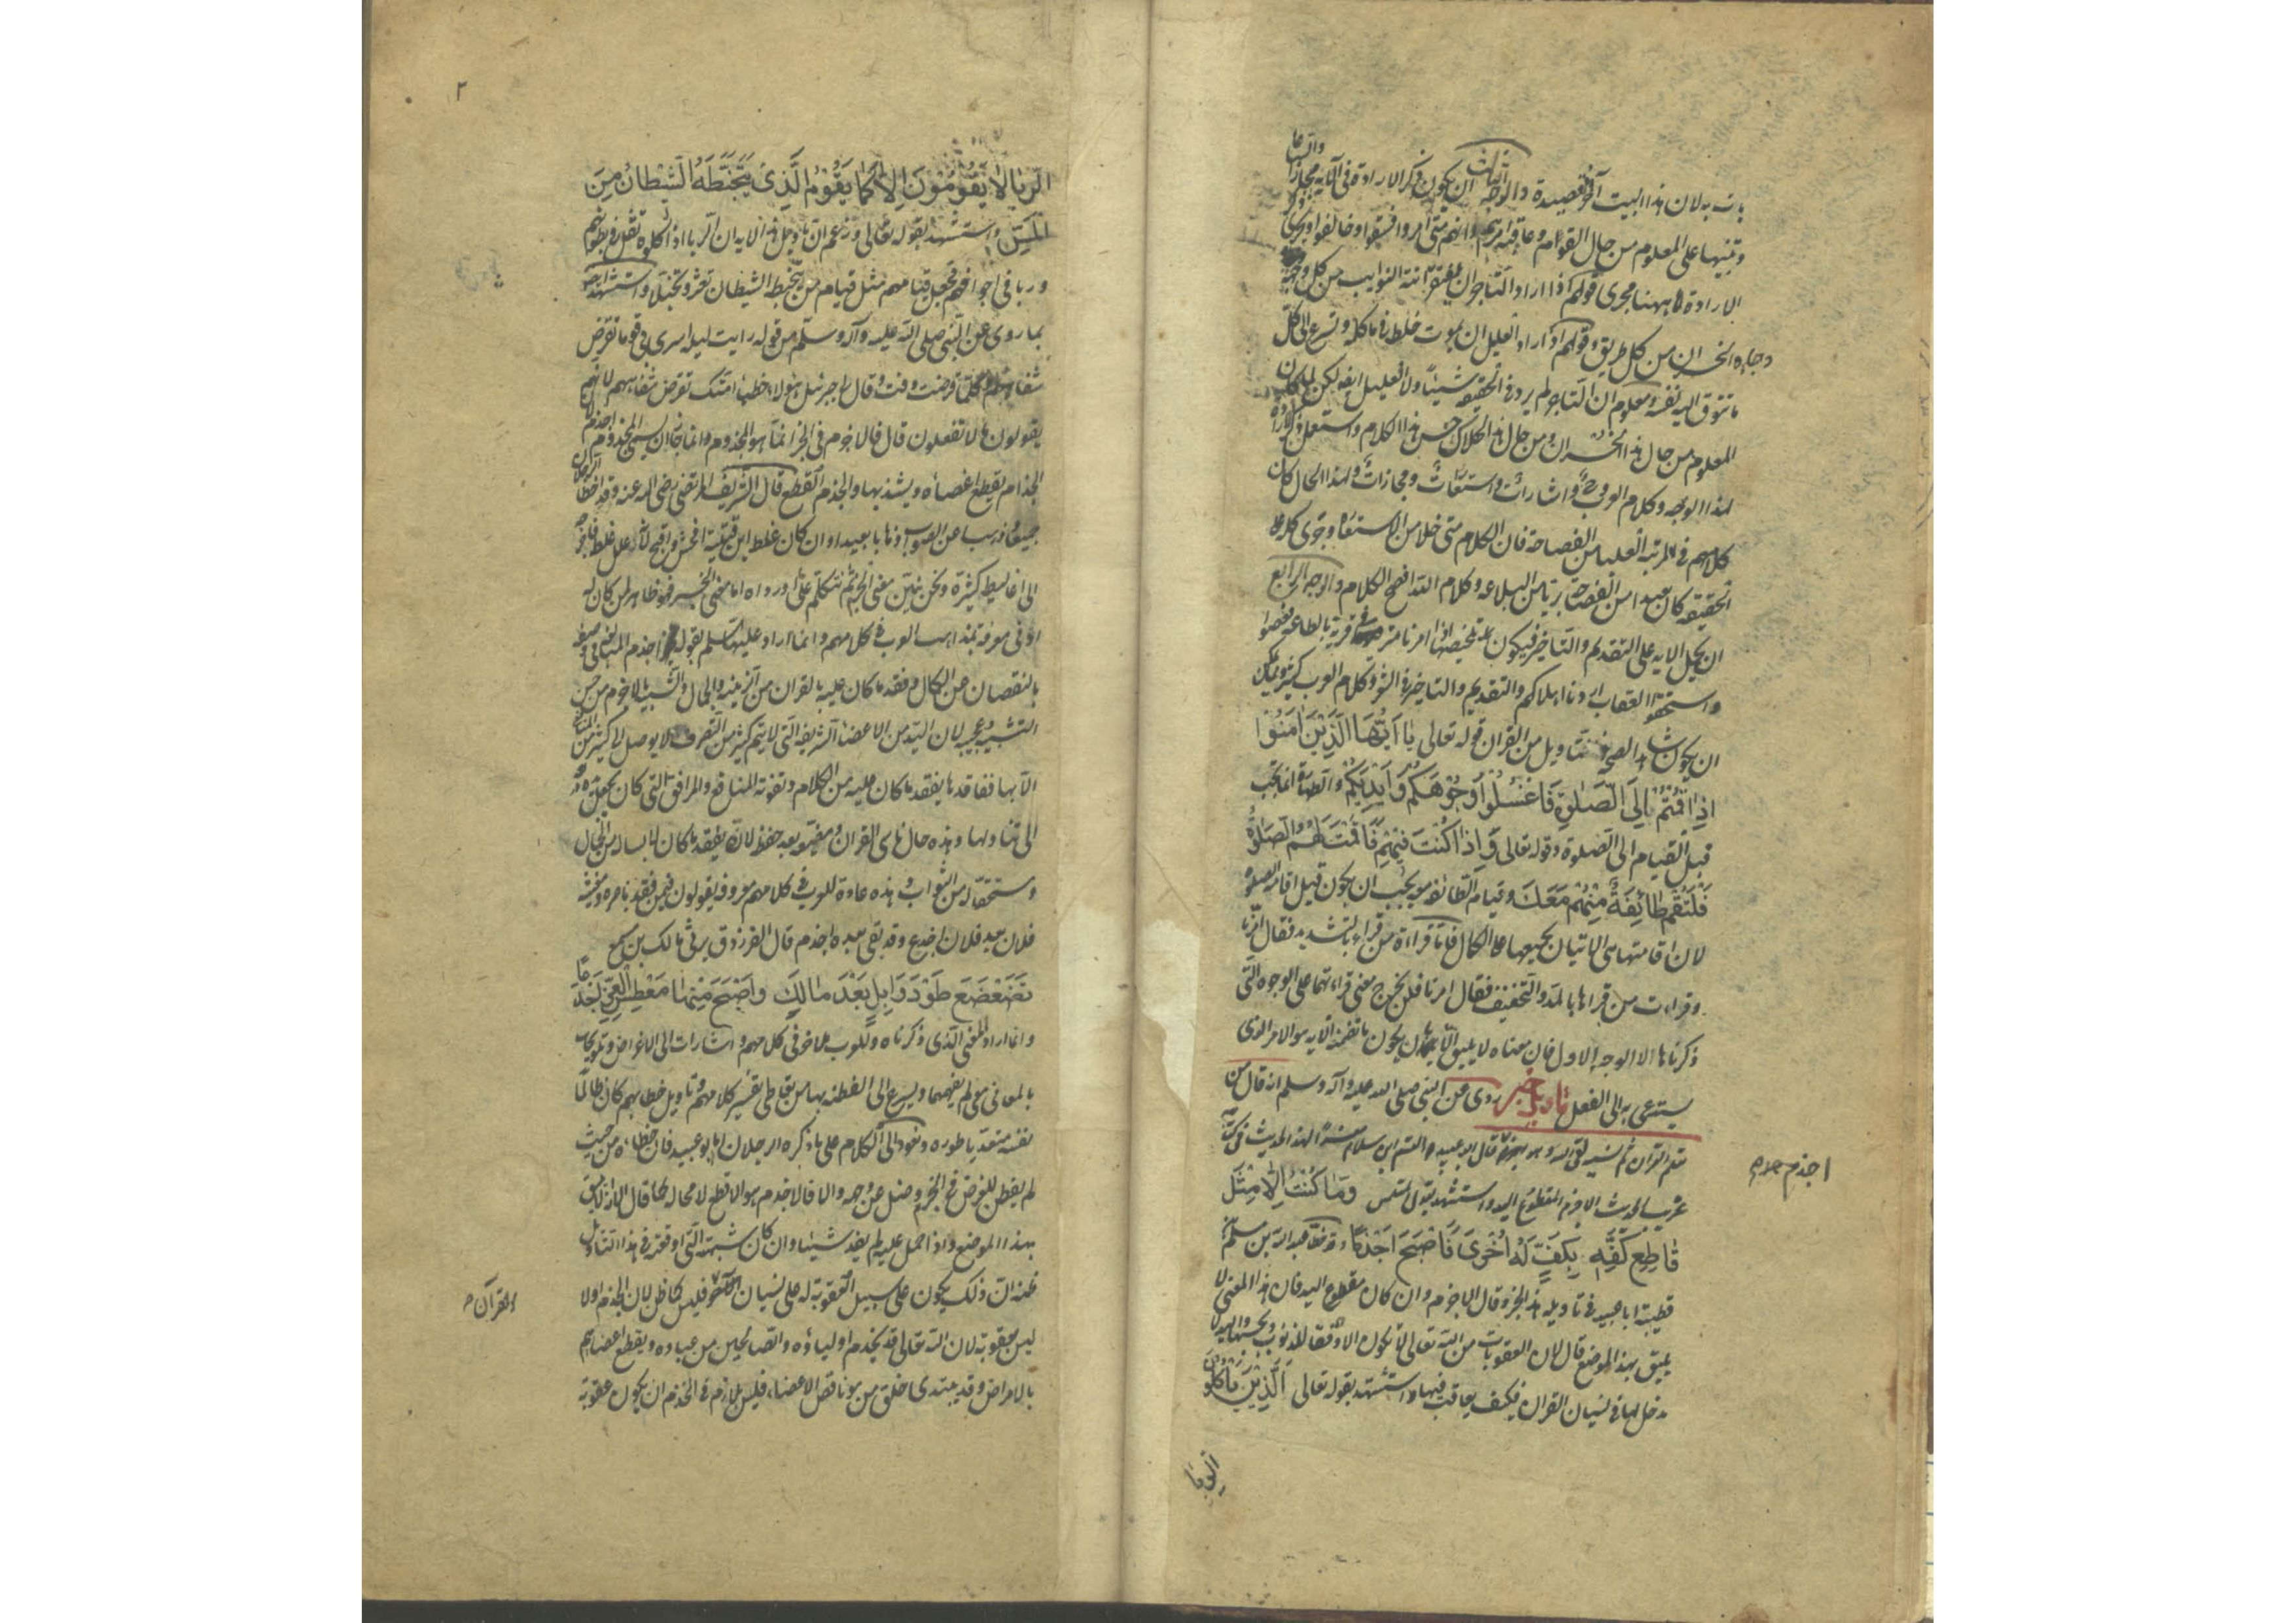 بات به لان هذا البيت آخر القصيدة والوجه الثالث ان يكون ذكر الارادة في الآية مجازا واتساعا
وتنبيها على المعلوم من حال القوم وعاقبة امرهم وانهم متى امروا فسقوا وخالفوا وجرى ذكر
الارادة هاهنا مجرى قولهم اذا اراد التاجر ان يفتقر اتته النوايب من كل وجه
وجاءه الخسران من كل طريق وقولهم اذا اراد العليل ان يموت خلط في ماكله وتسرع الى كل
ما تتوق اليه نفسه ومعلوم ان التاجر لم يرد في الحقيقة شيئا ولا العليل ايضا لكن لما كان
المعلوم من حال هذا الخسران ومن حال هذا الهلاك حسن هذا الكلام واستعمل ذكر الارادة
لهذا الوجه وكلام العرب وحي واشارات واستعارات ومجازات ولهذا الحال كان
كلامهم في المرتبة العليا من الفصاحة فان الكلام متى خلا من الاستعارة وجرى كله على
الحقيقة كان بعيدا من الفصاحة بريا من البلاغة وكلام الله افصح الكلام والوجه الرابع
ان يحمل الاية على التقديم والتاخير فيكون تلخيصها اذا امرنا مترفي قرية بالطاعة فعصوا
واستحقوا العقاب اردنا اهلاكهم والتقديم والتاخير في الشعر وكلام العرب كثير ويمكن
ان يكون شاهد الصحة هذا التاويل من القران قوله تعالى يا ايها الذين امنوا
اذا قمتم الى الصلوة فاغسلوا وجوهكم وايديكم والطهارة انما تجب
قبل القيام الى الصلوة وقوله تعالى واذا كنت فيهم فاقمت لهم الصلوة
فلتقم طائفة منهم معك وقيام الطائفة معه يجب ان يكون قبل اقامة الصلوة
لان اقامتها هي الاتيان بجميعها على الكمال فاما قراءة من قراء بالتشديد فقال امرنا
وقراءت من قراها بالمد والتخفيف فقال امرنا فلن يخرج معنى قراءتهما على الوجوه التي
ذكرناها الا الوجه الاول فان معناه لا يليق الا بان يكون ما تضمنه الاية هو الامر الذي
يستدعى به الى الفعل تاويل خبر روى عن النبي صلى الله عليه وآله وسلم انه قال من
تعلم القران ثم نسيه لقى الله وهو اجذم قال ابو عبيد القسم ابن سلام مفسرا لهذا الحديث في كتابه
اجذم
غريب الحديث الاجذم المقطوع اليد واستشهد بقول المتلمس وما كنت الا مثل
قاطع كفه بكف له اخرى فاصبح اجذما وقد خطا عبد الله بن مسلم
قتيبة ابا عبيد في تاويله هذا الخبر وقال الاجذم وان كان مقطوع اليد فان هذا المعنى لا
يليق بهذا الموضع قال لان العقوبات من الله تعالى لا تكون الا وفقا للذنوب وبحسبها واليد لا
مدخل لها في نسيان القران فكيف يعاقب فيها واستشهد بقوله تعالى الذين ياكلون
الربا
٢
الربا لا يقومون الا كما يقوم الذي يتخبطه الشيطان من
المس واستشهد بقوله تعالى وزعم ان تاويل هذه الاية ان الربا اذا اكلوه ثقل في بطونهم
وربا في اجوافهم فجعل قيامهم مثل قيام من يتخبطه الشيطان تعثرا وتخبلا واستشهد ايضا
بما روى عن النبي صلى الله عليه وآله وسلم من قوله رايت ليلة اسرى بي قوما تقرض
شفاههم كلما قرضت وفت وقال لي جبرئيل هؤلاء خطباء امتك تقرض شفاههم لانهم
يقولون ما لا تفعلون قال فالاجذم في الخبر انما هو المجذوم وانما جاز ان يسمى المجذوم اجذم لان
الجذام يقطع اعضاءه ويشذبها والجذم القطع قال الشريف المرتضى رضى الله عنه وقد اخطا الرجلان
جميعا وذهبا عن الصواب ذهابا بعيدا وان كان غلط ابن قتيبة افحش واقبح لانه علل غلطه فاخرجه
الى اغاليط كثيرة ونحن نبين معنى الخبر ثم نتكلم على ما اورداه اما معنى الخبر فهو ظاهر لمن كان له
ادنى معرفة بمذاهب العرب في كلامهم وانما اراد عليه السلم بقوله اجذم المبالغة في وصفه
بالنقصان عن الكمال وفقد ما كان عليه بالقران من الزينة والجمال والتشبيه بالاجذم من حسن
التشبيه وعجيبه لان اليد من الاعضاء الشريفة التي لا يتم كثير من التصرف ولا يوصل الى كثير من المنافع
الا بها ففاقدها يفقد ما كان عليه من الكلام وتفوته المنافع والمرافق التي كان يجعل يده ذريعة
الى تناولها وهذه حال ناسي القران ومضيعه بعد حفظه لانه يفقد ما كان لابسه من الجمال
ومستحقا له من الثواب وهذه عادة للعرب في كلامهم معروفة يقولون فيمن فقد ناصره ومعينه
فلان بعد فلان اجدع وقد بقى بعده اجذم قال الفرزدق يرثي مالك بن مسمع
تضعضع طودا وايل بعد مالك واصبح منها معطس العز اجدعا
وانما اراد المعنى الذي ذكرناه وللعرب ملاحن في كلامهم واشارات الى الاغراض وتلويحات
بالمعاني متى لم يفهمها ويسرع الى الفطنة بها من تعاطى تفسير كلامهم وتاويل خطابهم كان ظالما
نفسه متعديا طوره ونعود الى الكلام على ما ذكره الرجلان اما ابو عبيد فان خطاءه من حيث
لم يفطن للغرض في الخبر وضل عن وجهه والا فالاجذم هو الاقطع لا محالة كما قال الا انه لا يليق
بهذا الموضع واذا حمل عليه لم يفد شيئا وان كان شبهته التي اوقعته في هذا التاويل
ظنه ان ذلك يكون على سبيل العقوبة له على نسيان القرآن فليس كما ظن لان الجذم اولا
القرآن
ليس بعقوبة لان الله تعالى قد يجذم اولياءه والصالحين من عباده ويقطع اعضاءهم
بالامراض وقد يبتدى خلق من هو ناقص الاعضاء فليس بلازم في الجذم ان يكون عقوبة